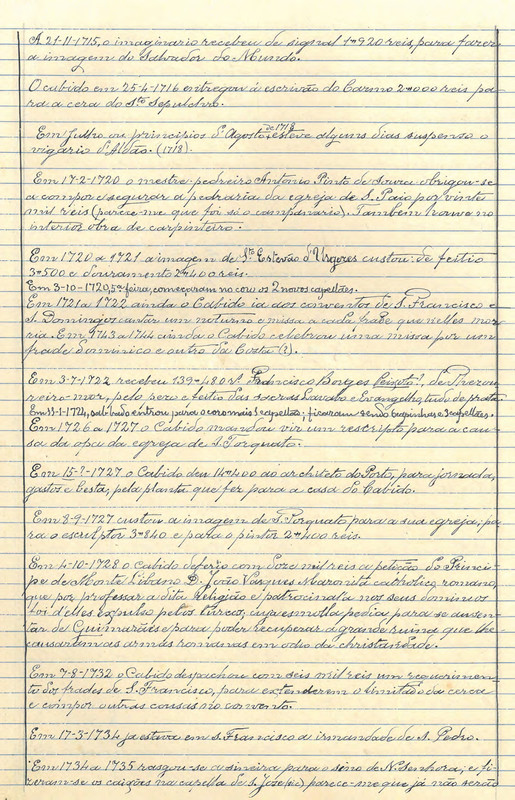 A 21-11-1715, o imaginario recebeu de signal 1$920 reis, para fazer
a imagem do Salvador do Mundo.
O cabido em 25-4-1716 entregou á escrivão do Carmo 2$000 reis pa-
ra a cera do Sto Sepulchro.
Em Julho ou principios d'Agosto de 1718 esteve alguns dias suspenso o
vigario d'Aldão. (1718).
Em 17-2-1720 o mestre pedreiro Antonio Pinto de Souza obrigou-se
a compor e segurar a pedraria da egreja de S. Paio por vinte
mil reis (parece-me que foi só o campanario). Tambem houve no
interior obra de carpinteiro.
Em 1720 a 1721 a imagem de Sto Estevão d'Urgezes custou: de feitio
3$500 e douramento 2$400 reis.
Em 3-10-1720, 5ª feira, começaram no coro os 2 novos capellães.
Em 1721 a 1722 ainda o Cabido ia aos conventos de S. Francisco e
S. Domingos cantar um noturno e missa a cada frade que nelles mor-
ria. Em 1743 a 1744 ainda o Cabido celebrou uma missa por um
frade dominico e outro da Costa (?).
Em 3-7-1722 recebeu 139$480 rs Francisco Borges Peixoto?, de
reiro-mor, pelo pero e feitio das sacras Lavabo e Evangelho, tudo de prata
Em 11-1-1724, sabbado entrou para o coro mais 1 capellão; ficaram sendo 3 capellães.
Em 1726 a 1727 o Cabido mandou vir um rescripto para a cau-
sa da opa da egreja de S. Torquato.
Em 15-?-1727 o Cabido deu 14$400 ao architeto do Porto, para jornada,
gastos e besta, pela planta que fez para a casa do Cabido.
Em 8-9-1727 custou a imagem de S. Torquato, para a sua egreja; pa-
ra o esculptor 3$840 e para o pintor 2$400 reis.
Em 4-10-1728 o Cabido deferio com doze mil reis a petição do Princi-
pe de Monte Libano D. João Vasques Maronita catholico romano,
que por professar a dita religião e patrocinal-a nos seus dominios
foi d'elles expulso pelos turcos, cuja esmolla pedia para se ausen-
tar de Guimarães e para poder recuperar a grande ruina que lhe
causaram as armas romanas em odio da christandade.
Em 7-8-1732 o Cabido despachou com seis mil reis um requerimen-
to dos frades de S. Francisco, para extenderem o limitado da cerca
e compor outras cousas no convento.
Em 17-3-1734 já estava em S. Francisco a irmandade de S. Pedro.
Em 1734 a 1735 rasgou-se a sineira para o sino de N. Senhora; e fi-
zeram-se os caixões na capella de S. José (sic) parece-me que já não serão